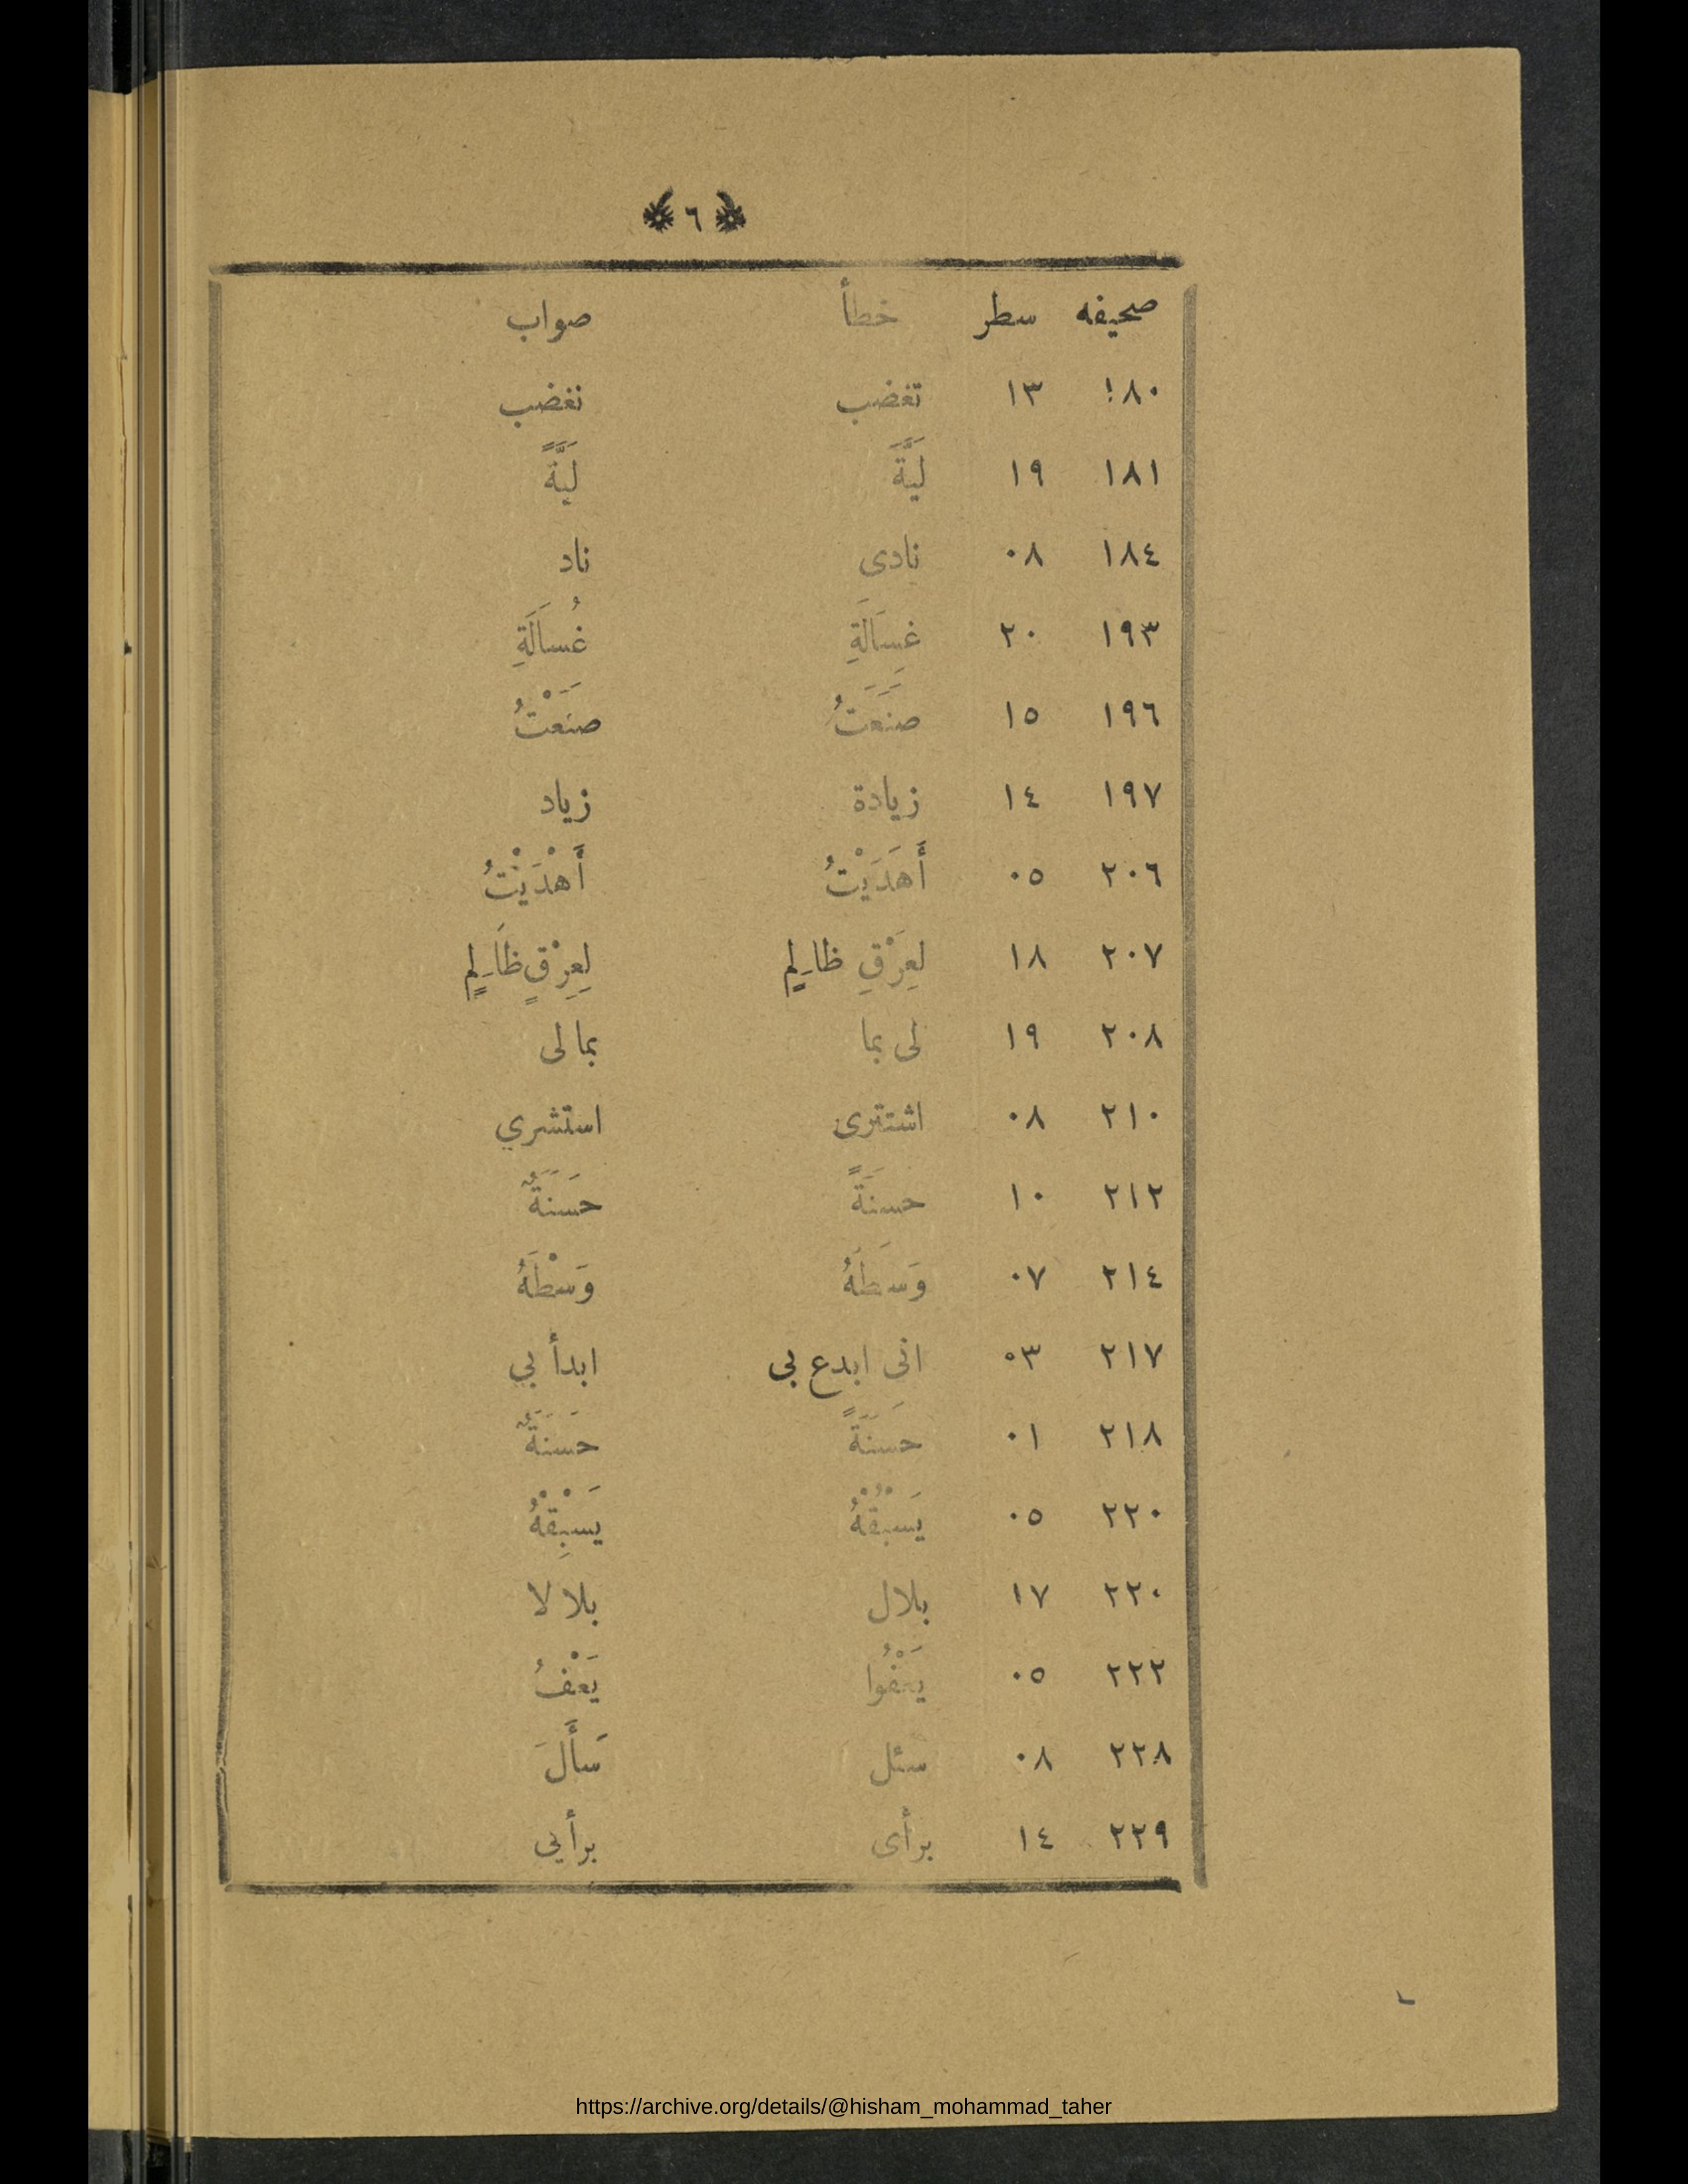 ٦
صحيفه سطر خطأ صواب
١٨٠ ١٣ تغضب نغضب
١٨١ ١٩ لَيَّةَ لَيَّةً
١٨٤ ٠٨ نادى ناد
١٩٣ ٢٠ غِسَالَةِ غُسَالَةِ
١٩٦ ١٥ صَنَعَتُ صَنَعْتُ
١٩٧ ١٤ زيادة زياد
٢٠٦ ٠٥ أَهَدَيْتُ أَهْدَيْتُ
٢٠٧ ١٨ لِعِرَْقِ ظالِمٍ لِعِرْقٍ ظَالِمٍ
٢٠٨ ١٩ لى بما بما لى
٢١٠ ٠٨ اشتترى استشري
٢١٢ ١٠ حسنَةً حَسَنَةٌ
٢١٤ ٠٧ وَسَطَهُ وَسْطَهُ
٢١٧ ٠٣ انى ابدع بى ابدأ بي
٢١٨ ٠١ حَسَنَةً حَسَنَةٌ
٢٢٠ ٠٥ يَسْبُقْهُ يَسْبِقْهُ
٢٢٠ ١٧ بلال بلالا
٢٢٢ ٠٥ يَعْفُوا يَعْفُ
٢٢٨ ٠٨ سئل سَأَلَ
٢٢٩ ١٤ برأى برأيي
https://archive.org/details/@hisham_mohammad_taher